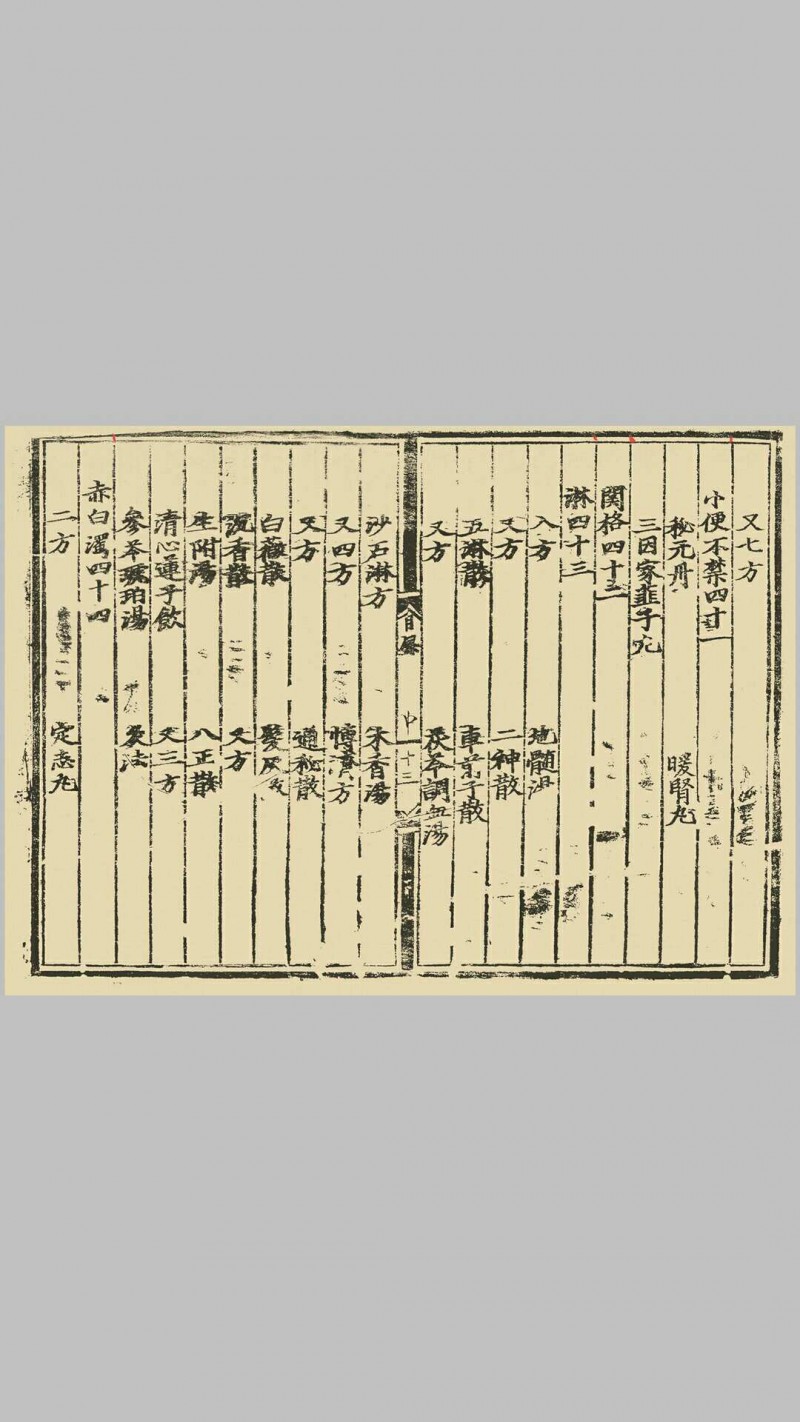 又七方
小便不禁四十一
秘元丹　暖腎丸
三因家韭子丸
関格四十二
淋四十三
入方　地髓湯
又方　二神散
五淋散　車前子散
又方　茯苓調血湯
目録　中　十三
沙石淋方　木香湯
又四方　博濟方
又方　通秘散
白薇散　髮灰散
沉香散　又方
生附湯　八正散
清心蓮子飲　又三方
參苓琥珀湯　灸法
赤白濁四十四
二方　定志丸